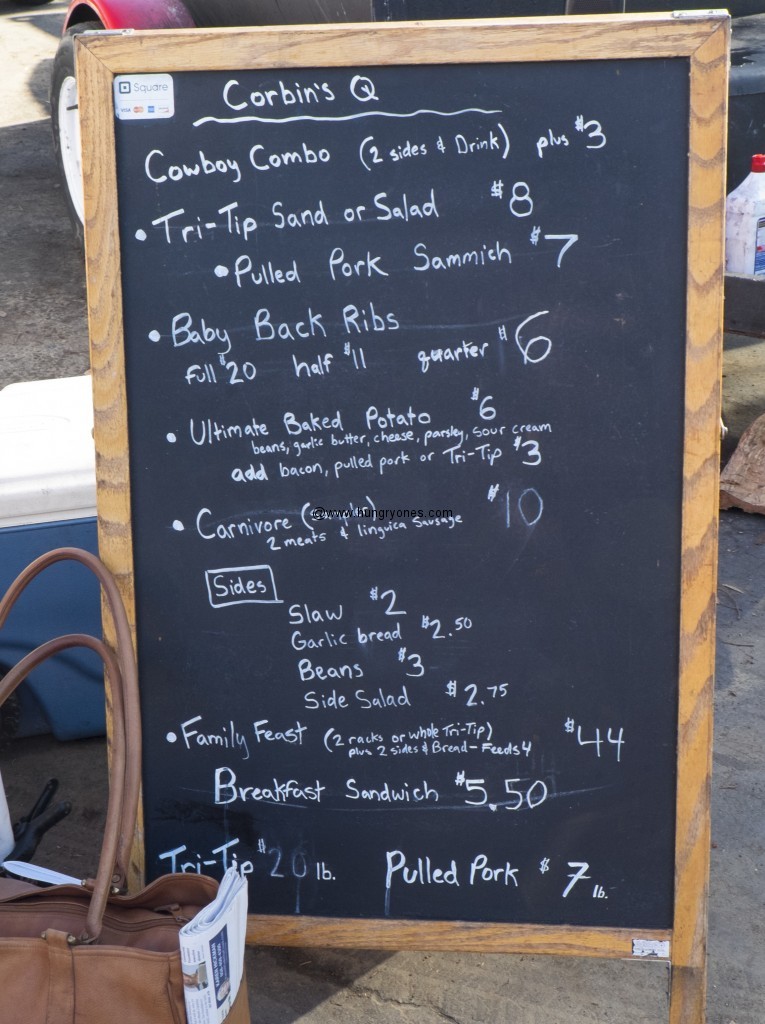 Square
VISA
Corbin's Q
Cowboy Combo (2 sides & Drink) plus $3
• Tri-Tip Sand or Salad $8
• Pulled Pork Sammich $7
• Baby Back Ribs
full $20 half $11 quarter $6
• Ultimate Baked Potato $6
beans, garlic butter, cheese, parsley, sour cream
add bacon, pulled pork or Tri-Tip $3
• Carnivore $10
@www.hungryones.com
2 meats & linguica sausage
Sides
Slaw $2
Garlic bread $2.50
Beans $3
Side Salad $2.75
• Family Feast (2 racks or whole Tri-Tip) $44
plus 2 sides & Bread - Feeds 4
Breakfast Sandwich $5.50
Tri-Tip $20 lb. Pulled Pork $7 lb.